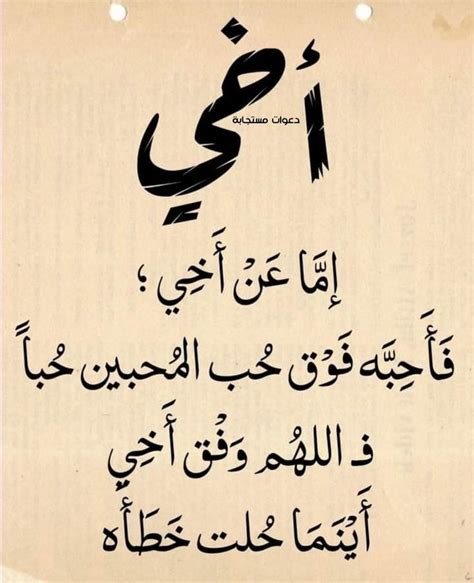 أخي
دعوات مستجابة
إِمَّا عَنْ أَخِي ؛
فَأَحِبَّه فَوْق حُب المُحبين حُباً
فـ اللهُم وَفْق أَخِي
أَيْنَمَا حُلت خَطَأْه